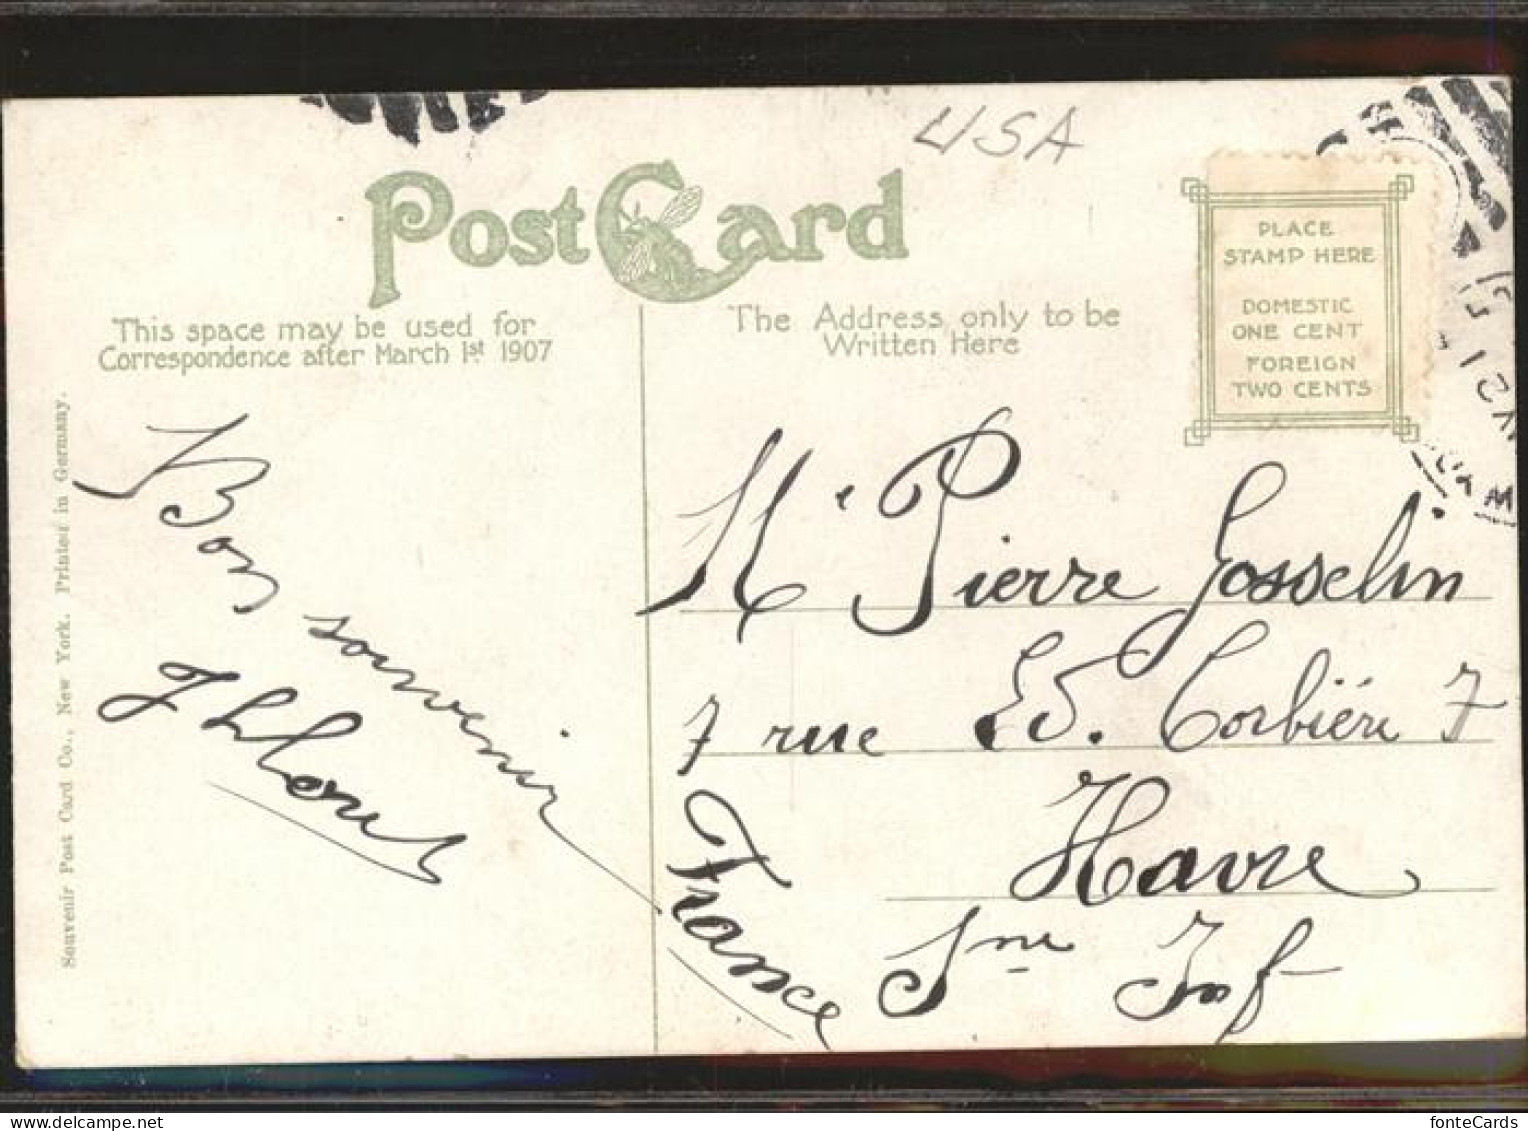 USA
Post Card
This space may be used for
Correspondence after March 1st 1907
The Address only to be
Written Here
PLACE
STAMP HERE
DOMESTIC
ONE CENT
FOREIGN
TWO CENTS
Souvenir Post Card Co., New York. Printed in Germany.
Bon souvenir
Mr Pierre Gosselin
7 rue Ed. Corbière 7
Havre
Sne Inf
France
fonteCards